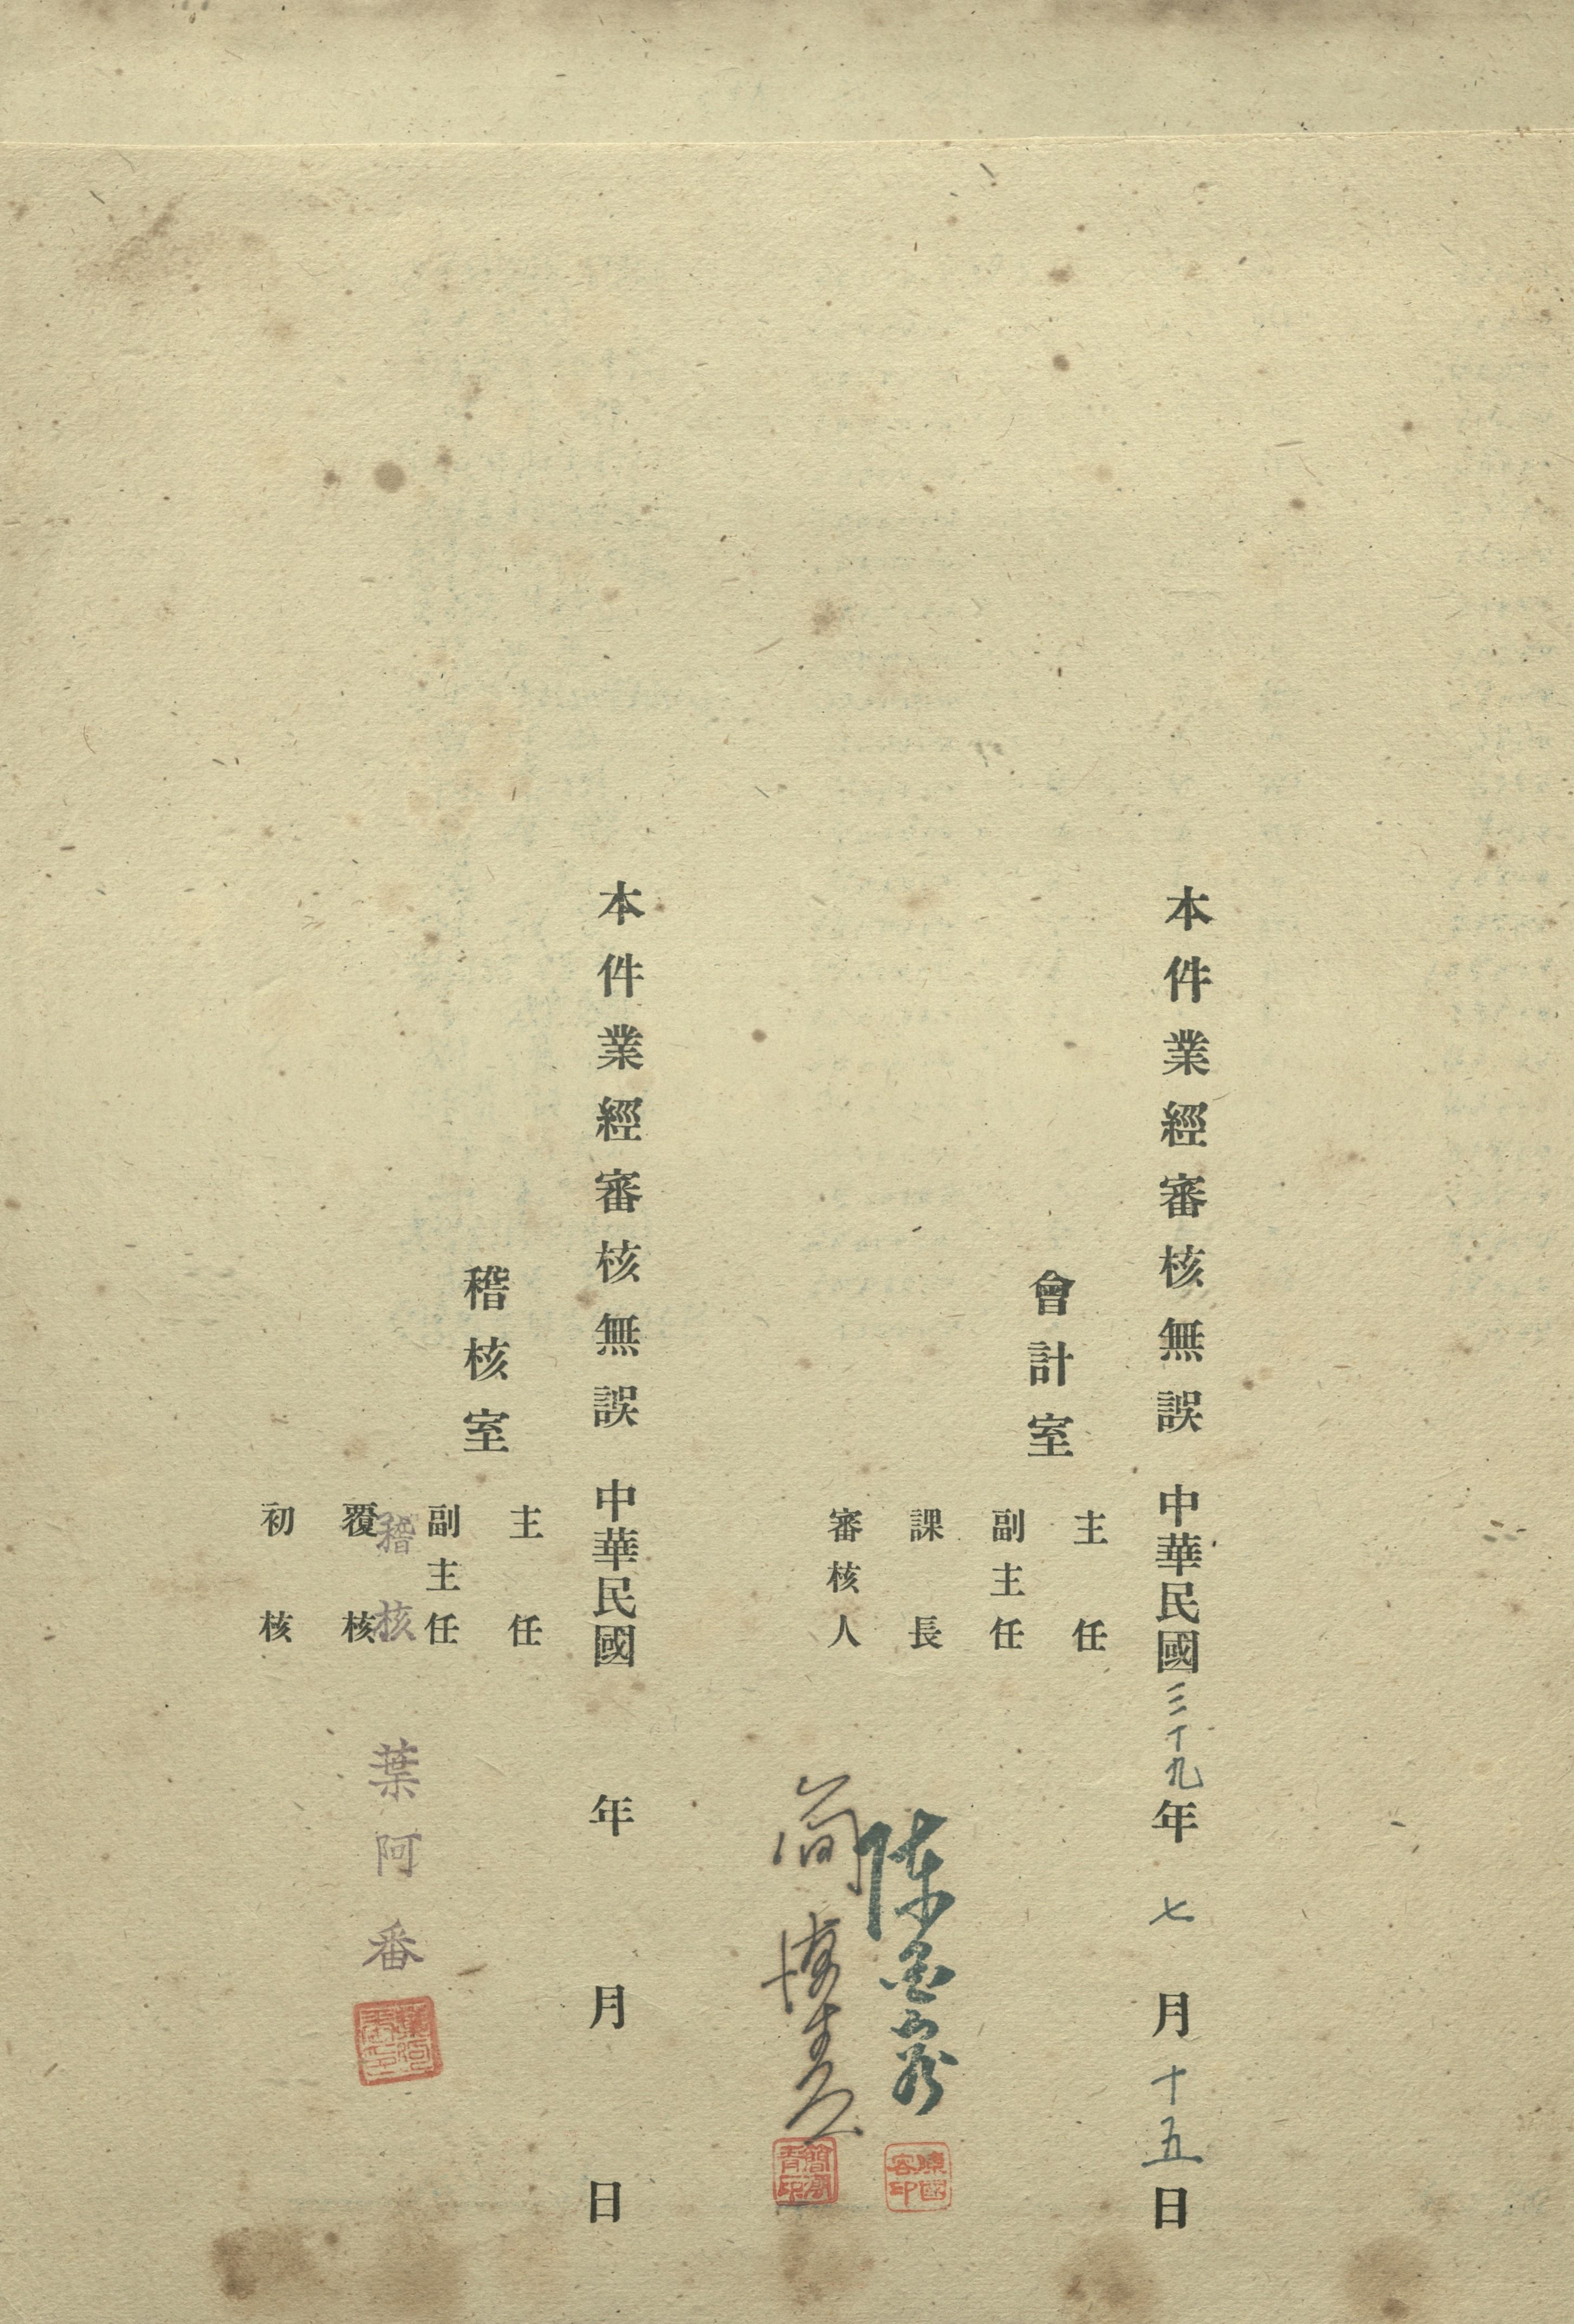 本件業經審核無誤 中華民國三十九年七月十五日
會計室
主任
副主任
課長 陳國容
審核人 簡
陳國容印
本件業經審核無誤 中華民國 年 月 日
稽核室
主任
副主任
稽核 葉阿番
覆核
初核